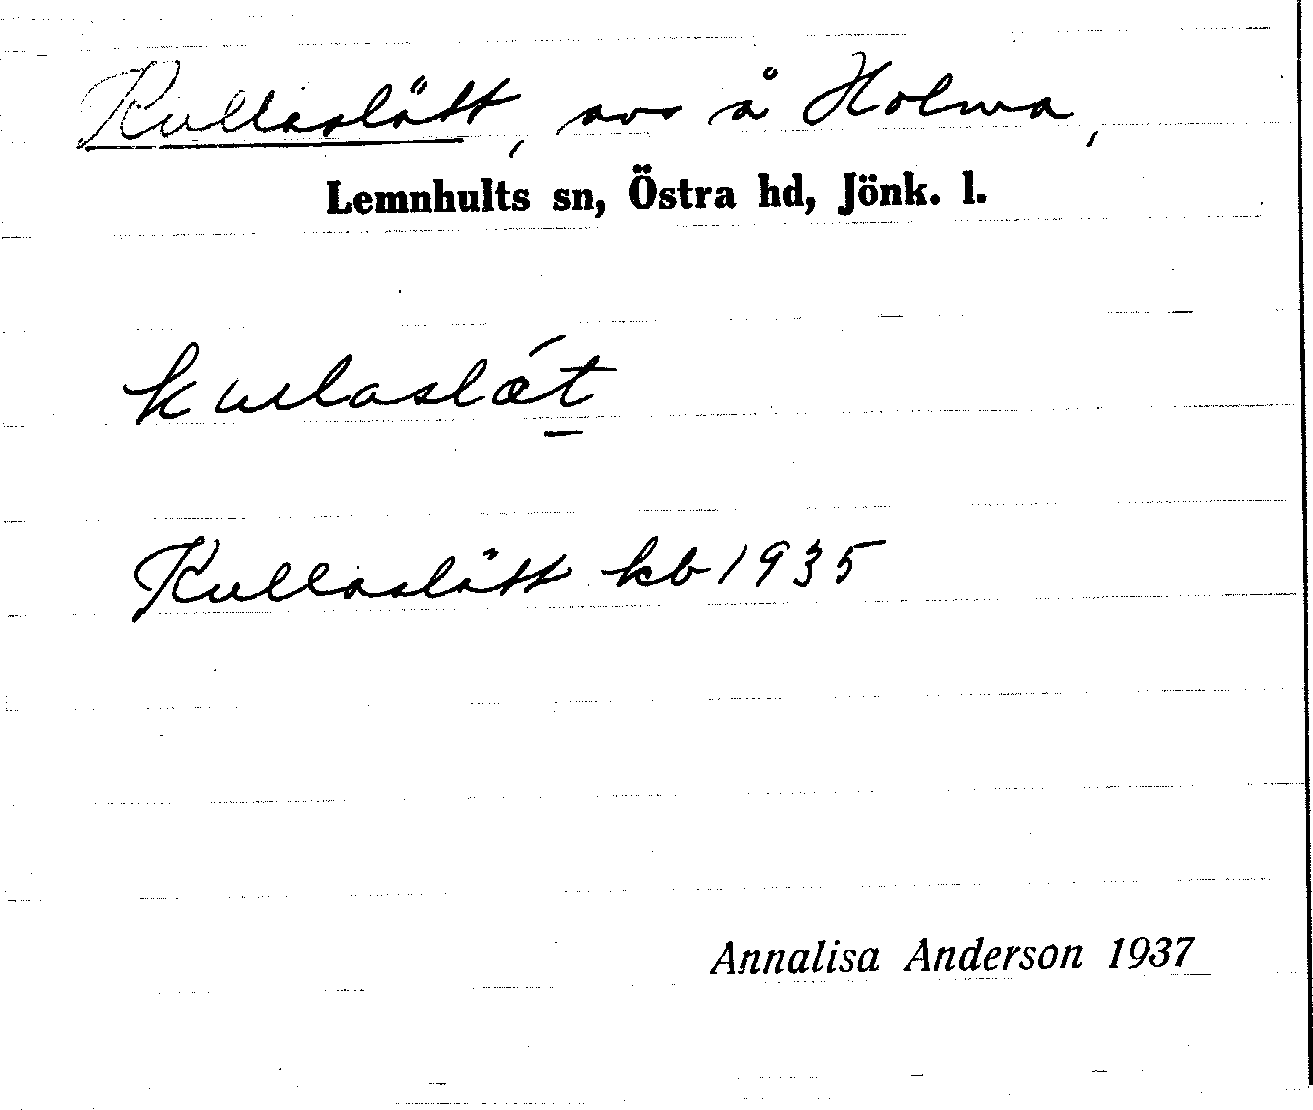 Kullaslätt, avs å Holma,
Lemnhults sn, Östra hd, Jönk. l.
kullaslǽt
Kullaslätt kb 1935
Annalisa Anderson 1937